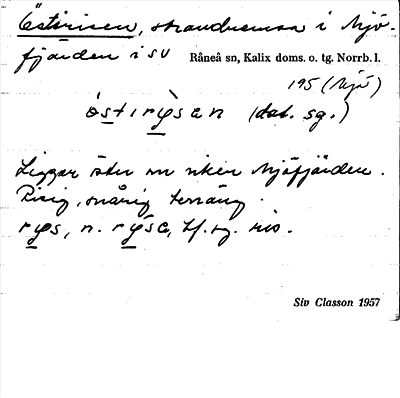 Österrisen, strandremsa i Mjö-
fjärden i SV Råneå sn, Kalix doms. o. tg. Norrb. l.
195 (Mjö)
òstırỳsan (dat. sg.)
Ligger öster om viken Mjöfjärden.
Risig, snårig terräng.
rys, n. rýsa, bf. sg. ris.
Siv Classon 1957